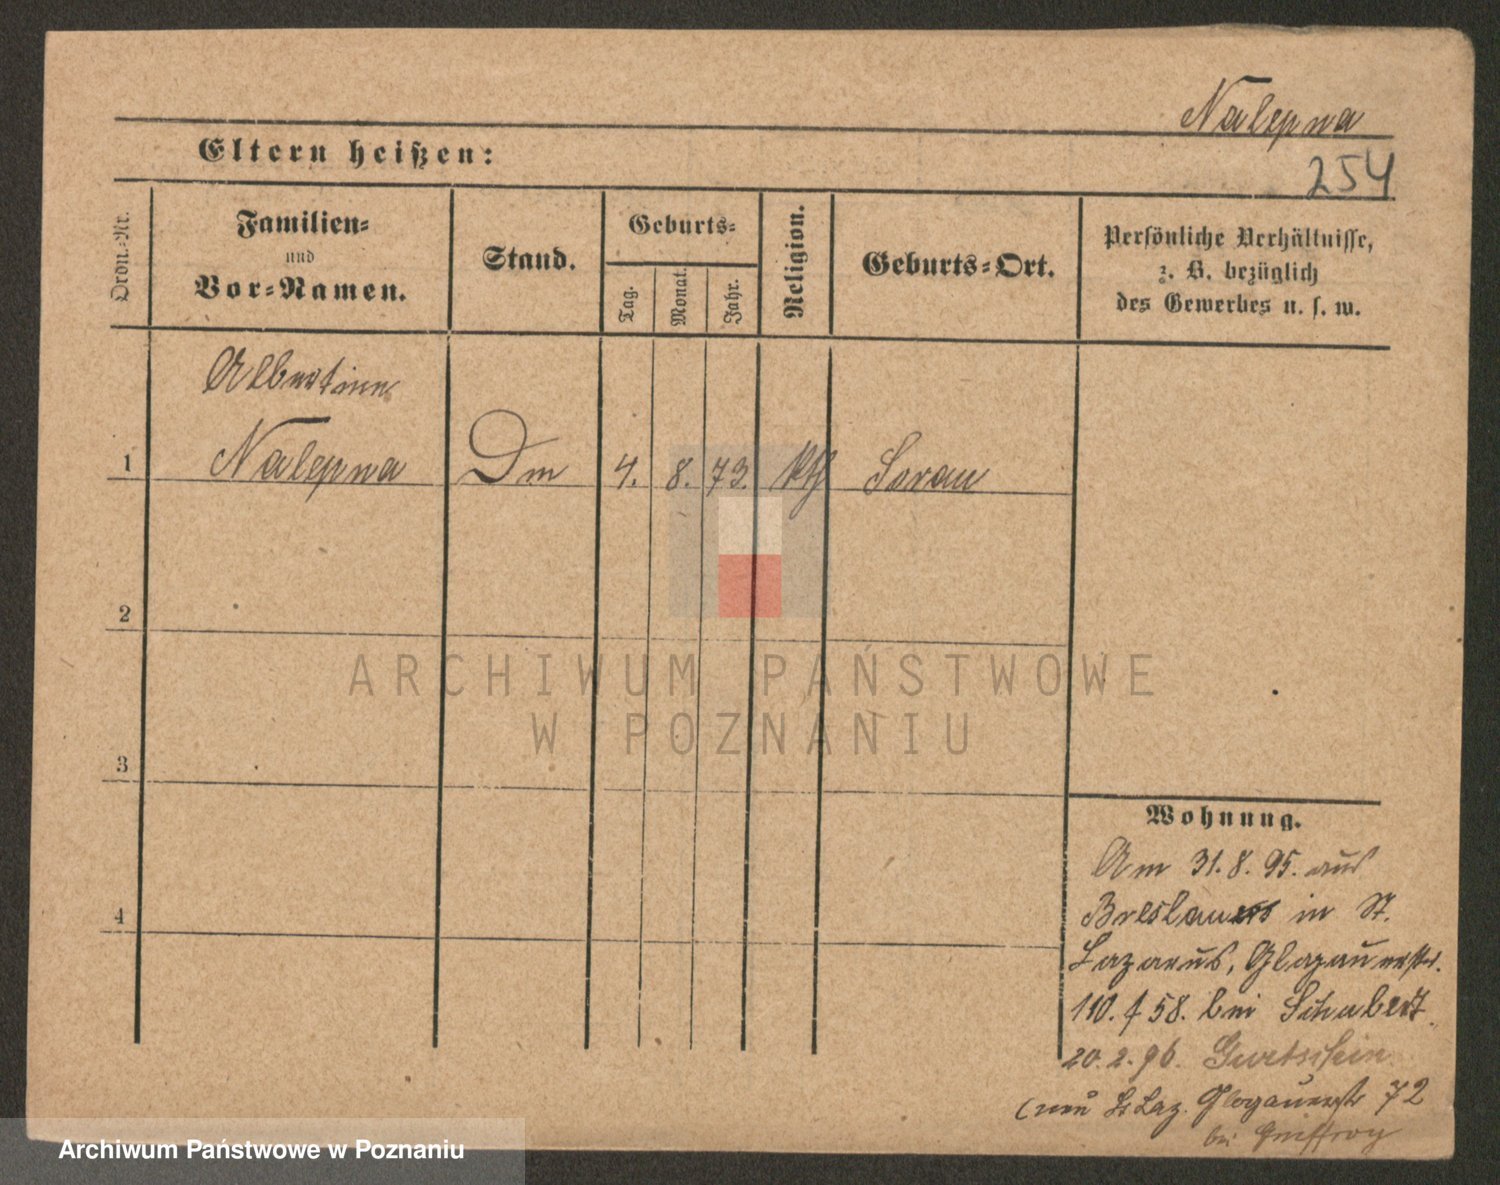 Nalepna
Eltern heißen:
254
Ordn.-Nr.
Familien-
und
Vor-Namen.
Stand.
Geburts-
Tag.
Monat.
Jahr.
Religion.
Geburts-Ort.
Persönliche Verhältnisse,
z. B. bezüglich
des Gewerbes u. s. w.
Albertine
1 Nalepna Dm 4. 8. 73. kth Sorau
2
3
4
Wohnung.
Am 31.8.95. aus
Breslau in St.
Lazarus, Glogauerstr.
110. f 58. bei Schubert.
20.2.96.
(neu St Laz. Glogauerstr 72
bei
ARCHIWUM PAŃSTWOWE
W POZNANIU
Archiwum Państwowe w Poznaniu